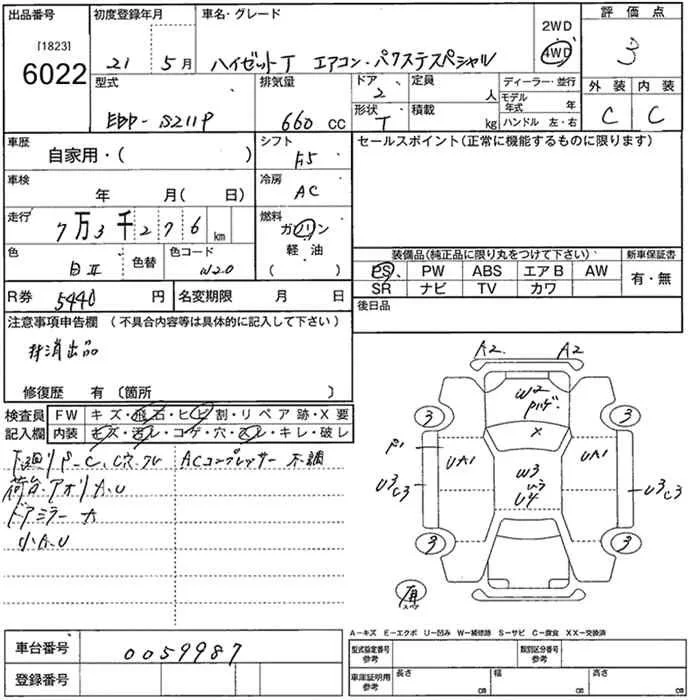 出品番号 初度登録年月 車名・グレード 2WD 評価点
[1823]
6022 21 5月 ハイゼットT エアコン・パワステスペシャル 4WD 3
型式 排気量 ドア 定員 ディーラー・並行 外装 内装
2 人 モデル年式 年
EBD-S211P 660 cc 形状 積載 ハンドル 左・右 C C
T kg
車歴 シフト セールスポイント(正常に機能するものに限ります)
自家用・( ) F5
車検 冷房
年 月( 日) AC
走行 燃料
7万3千276 km ガソリン
色 色替 色コード 軽油 装備品(純正品に限り丸をつけて下さい) 新車保証書
白II W20 ( ) PS PW ABS エアB AW 有・無
SR ナビ TV カワ
R券 5440 円 名変期限 月 日 後日品
注意事項申告欄 (不具合内容等は具体的に記入して下さい)
抹消出品
修復歴 有(箇所 )
検査員 FW キズ・飛石・ヒビ割・リペア跡・X要
記入欄 内装 キズ・汚レ・コゲ・穴・スレ・キレ・破レ
下廻りP-C、C穴 ACコンプレッサー不調
荷台・アオリA.U
ドアミラーA
小A.U
A2 A2
W2
X
3 3
P1 UA1 W3 UA1
U3 C3 U4 U3 C3
3 3
有
スペア
A-キズ E-エクボ U-凹み W-補修跡 S-サビ C-腐食 XX-交換済
車台番号 0059987 型式指定番号 参考 類別区分番号 参考
登録番号 車庫証明用 参考 長さ cm 幅 cm 高さ cm